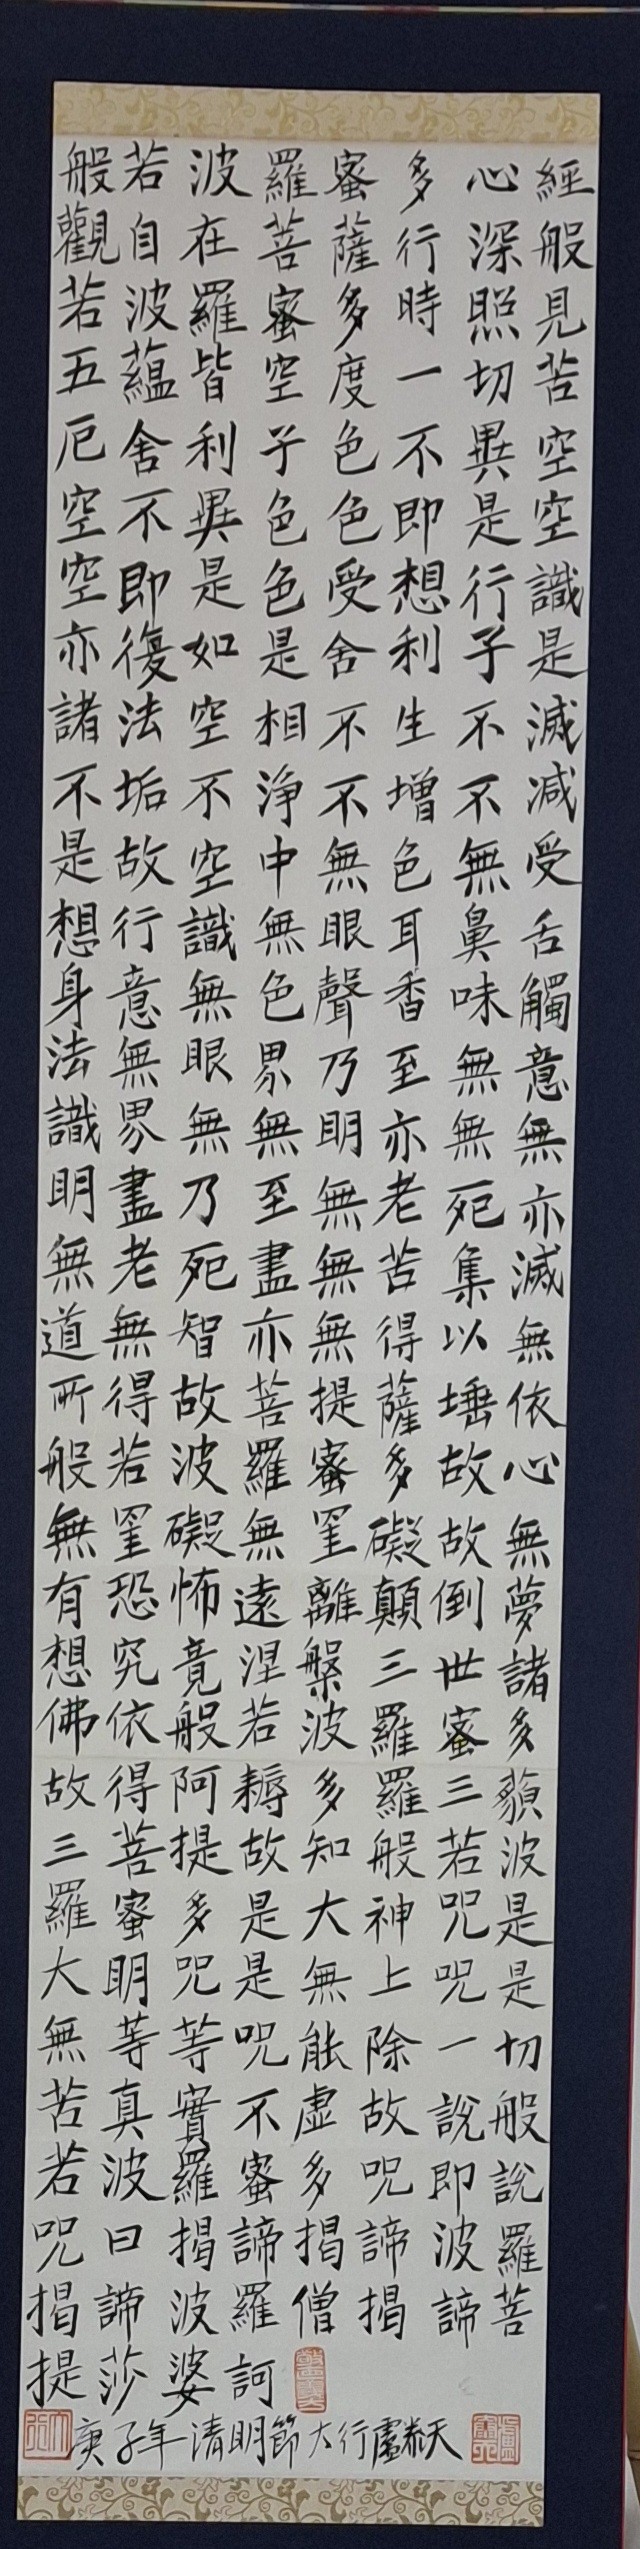 般若波羅蜜多心經
觀自在菩薩行深般
若波羅蜜多時照見
五蘊皆空度一切苦
厄舍利子色不異空
空不異色色即是空
空即是色受想行識
亦復如是舍利子是
諸法空相不生不滅
不垢不淨不增不減
是故空中無色無受
想行識無眼耳鼻舌
身意無色聲香味觸
法無眼界乃至無意
識界無無明亦無無
明盡乃至無老死亦
無老死盡無苦集滅
道無智亦無得以無
所得故菩提薩埵依
般若波羅蜜多故心
無罣礙無罣礙故無
有恐怖遠離顛倒夢
想究竟涅槃三世諸
佛依般若波羅蜜多
故得阿耨多羅三藐
三菩提故知般若波
羅蜜多是大神咒是
大明咒是無上咒是
無等等咒能除一切
苦真實不虛故說般
若波羅蜜多咒即說
咒曰揭諦揭諦波羅
揭諦波羅僧揭諦菩
提莎婆訶
庚子年清明節大行盧泰天